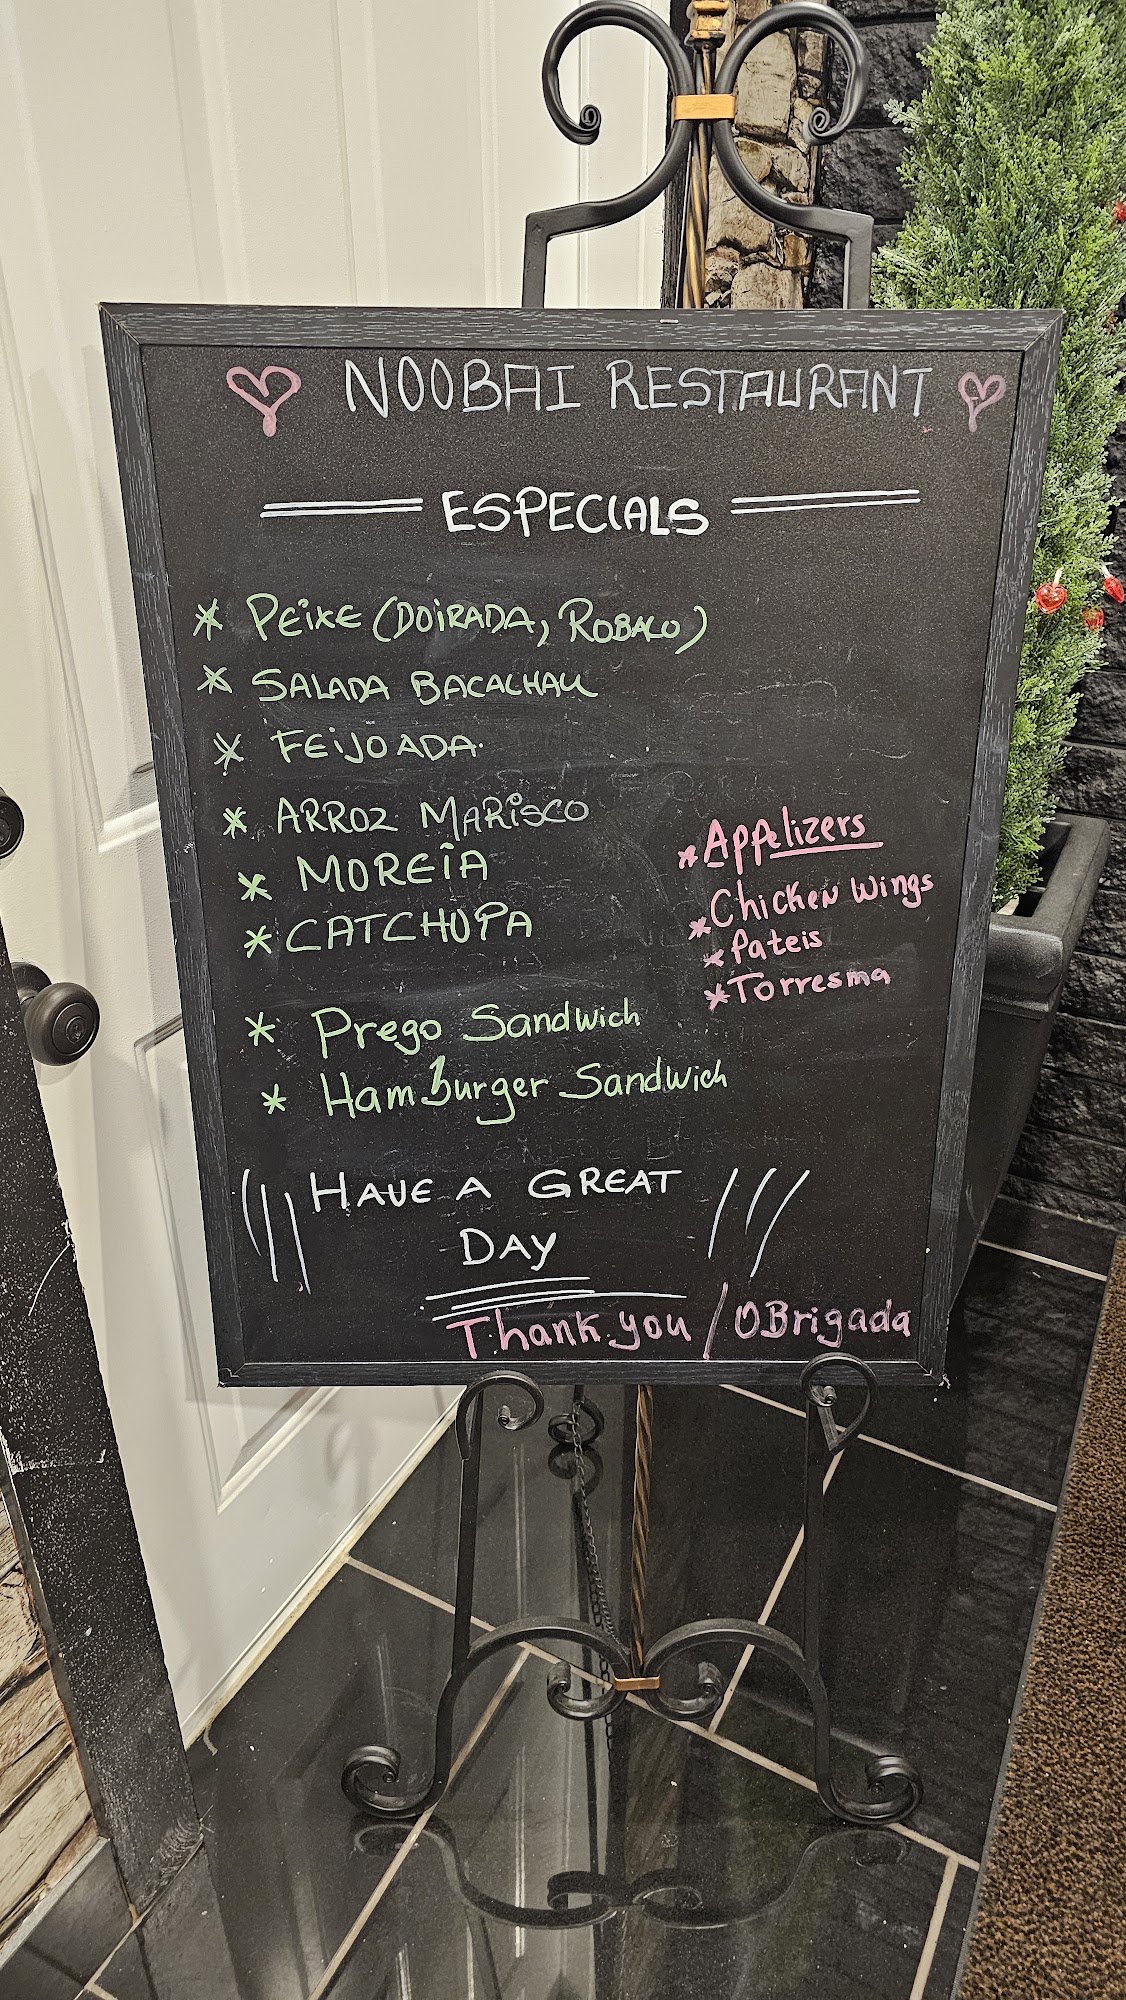 NOOBAI RESTAURANT
ESPECIALS
* PEIXE (DOIRADA, ROBALO)
* SALADA BACALHAU
* FEIJOADA
* ARROZ MARISCO
* MOREIA
* CATCHUPA
* Prego Sandwich
* HamBurger Sandwich
* Appelizers
* Chicken Wings
* Pateis
* Torresma
HAVE A GREAT
DAY
Thank you / OBrigada